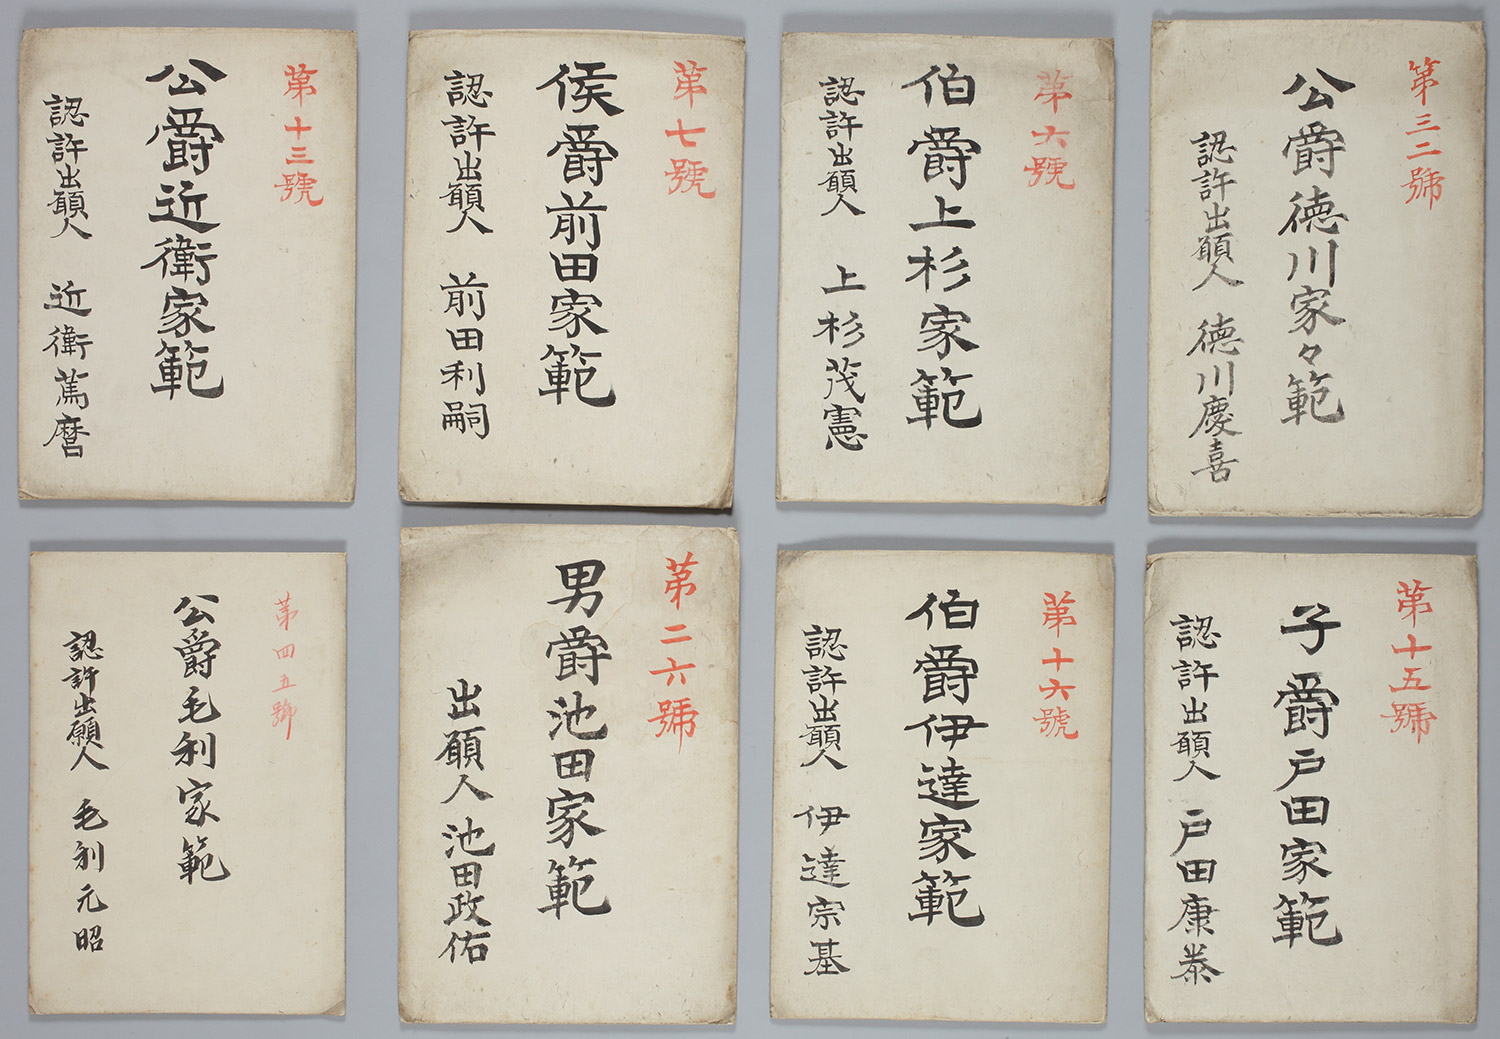 第十三號
公爵近衛家範
認許出願人 近衛篤麿
第七號
侯爵前田家範
認許出願人 前田利嗣
第六號
伯爵上杉家範
認許出願人 上杉茂憲
第三二號
公爵徳川家々範
認許出願人 徳川慶喜
第四五號
公爵毛利家範
認許出願人 毛利元昭
第二六號
男爵池田家範
出願人 池田政佑
第十六號
伯爵伊達家範
認許出願人 伊達宗基
第十五號
子爵戸田家範
認許出願人 戸田康泰